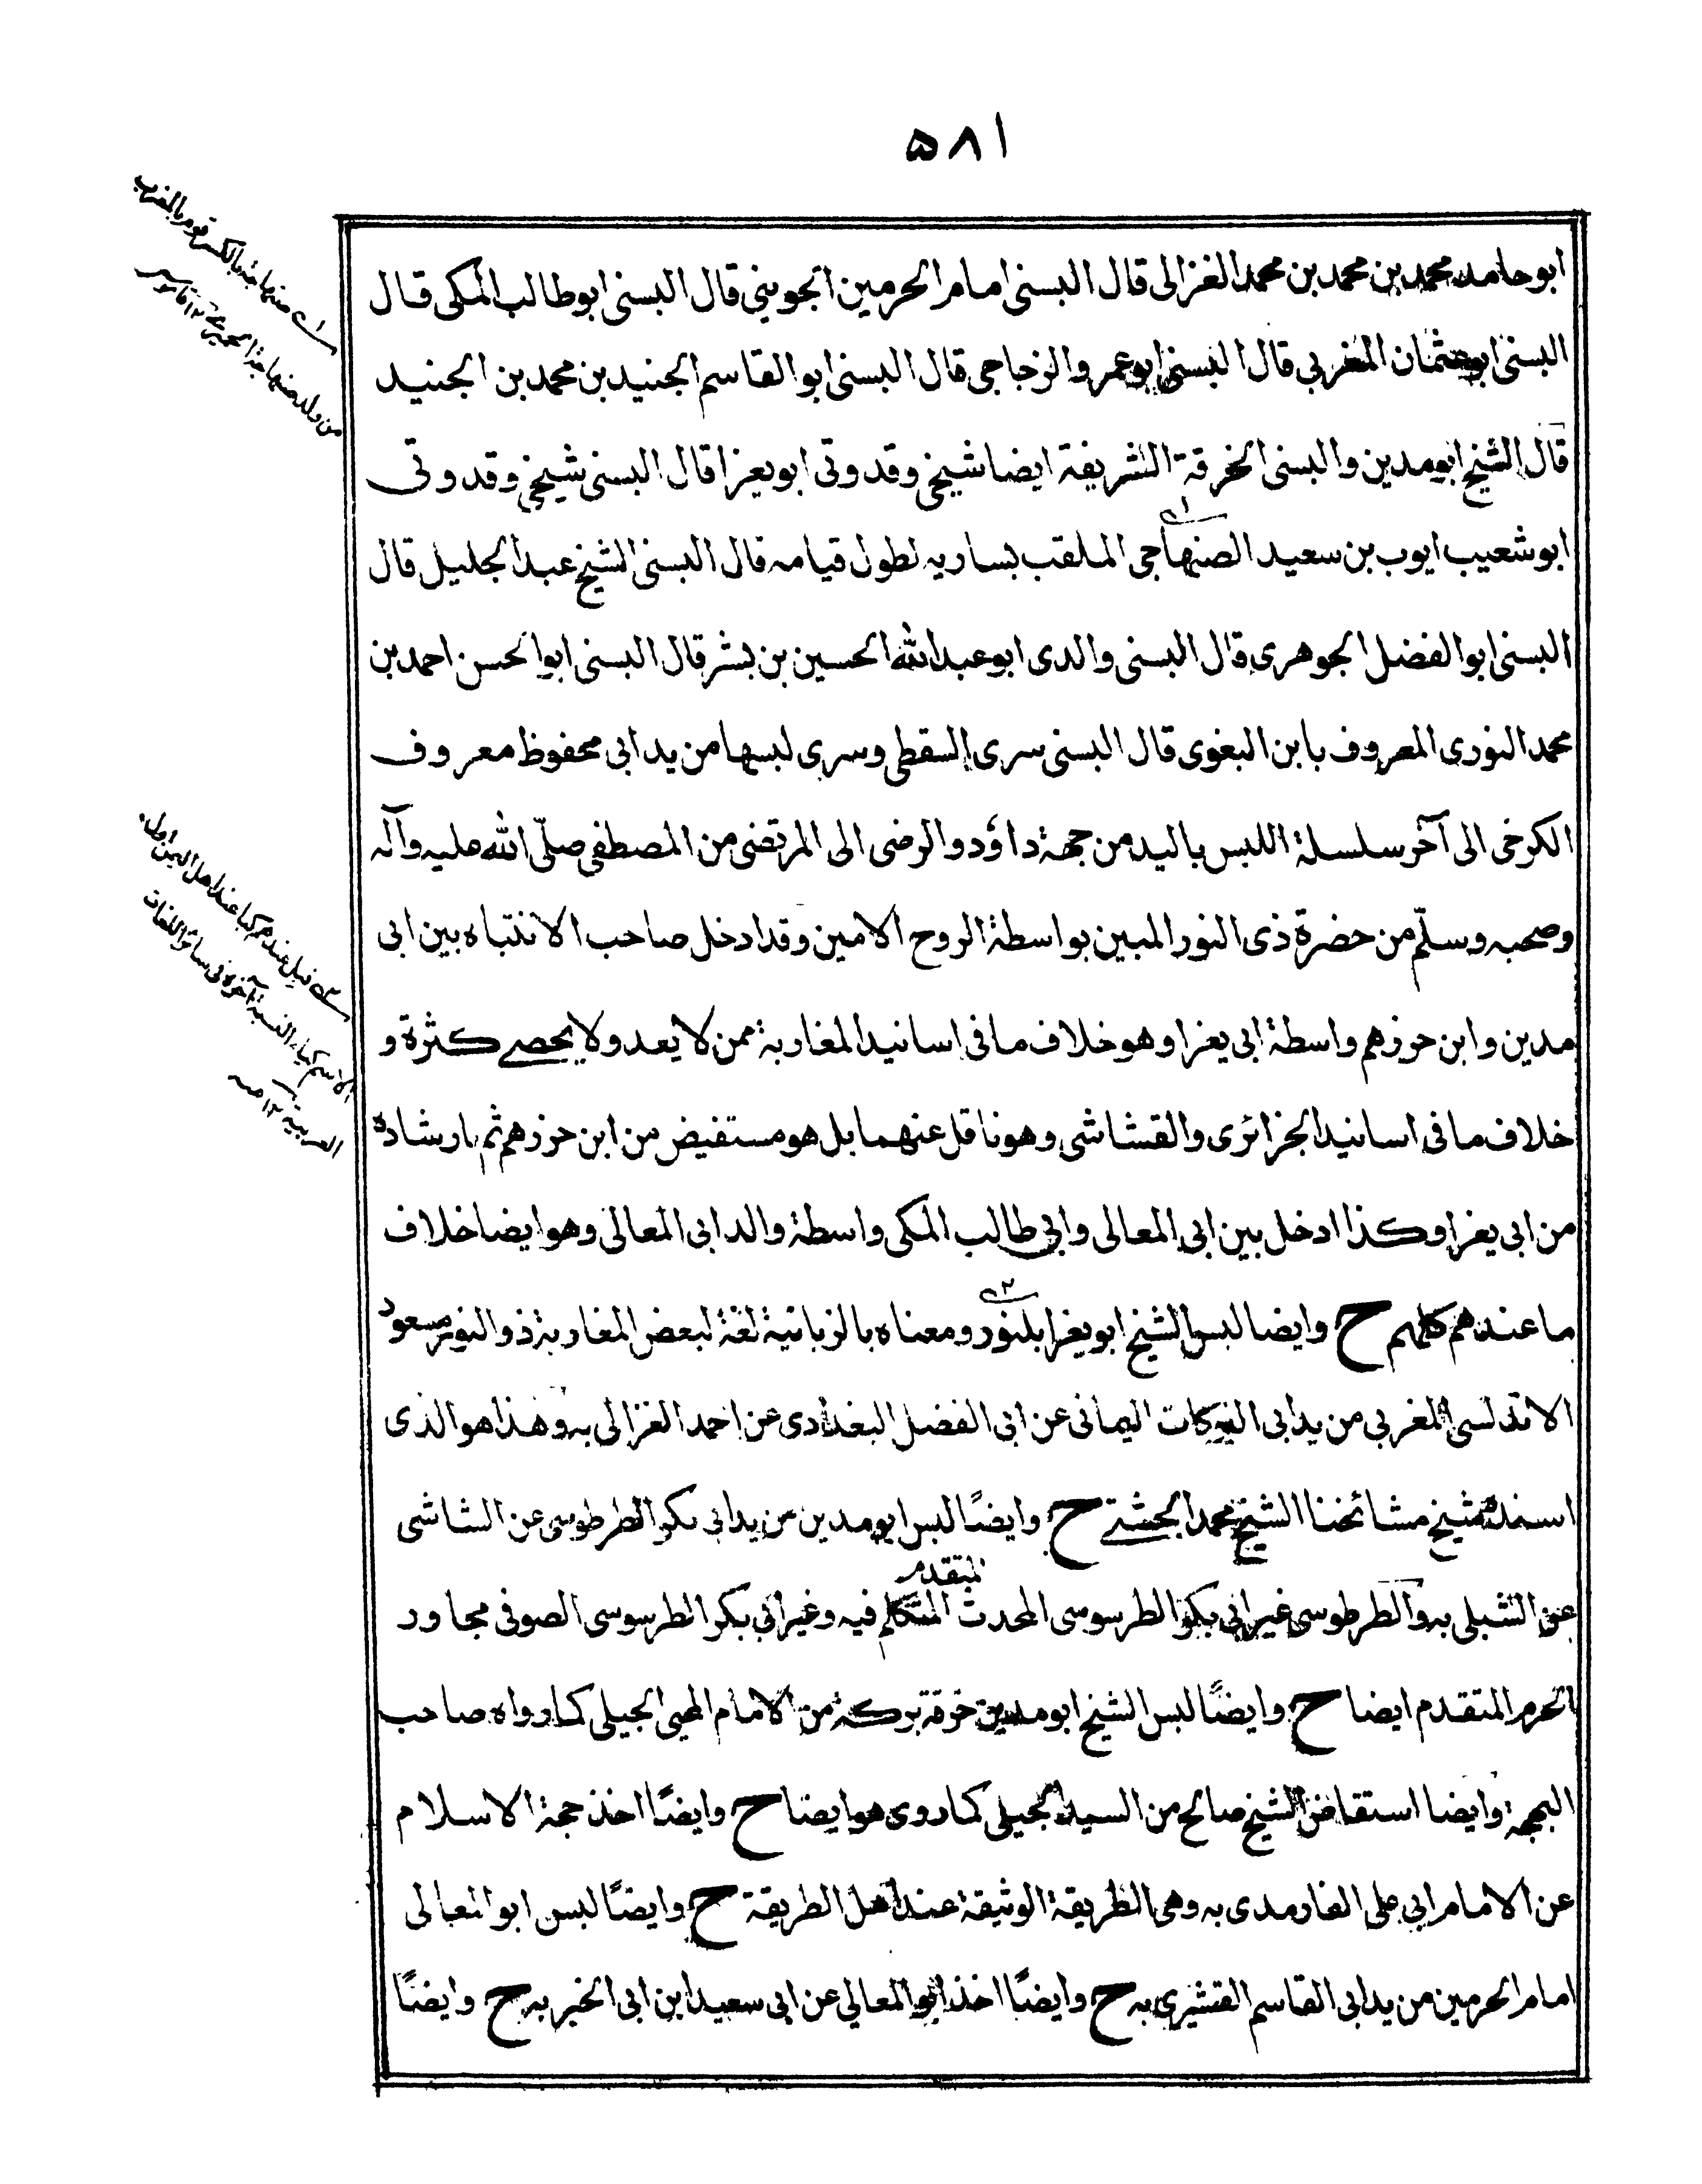 ۵۸۱
ابو حامد محمد بن محمد بن محمد الغزالى قال البسنى امام الحرمين الجوينى قال البسنى ابو طالب المكى قال
البسنى ابو عثمان المغربى قال البسنى ابو عمرو الزجاجى قال البسنى ابو القاسم الجنيد بن محمد بن الجنيد
قال الشيخ ابو مدين والبسنى الخرقة الشريفة ايضا شيخى وقدوتى ابو يعزا قال البسنى شيخى وقدوتى
ابو شعيب ايوب بن سعيد الصنهاجى الملقب بساريه لطول قيامه قال البسنى الشيخ عبد الجليل قال
البسنى ابو الفضل الجوهرى قال البسنى والدى ابو عبد الله الحسين بن بشر قال البسنى ابو الحسن احمد بن
محمد النورى المعروف بابن البغوى قال البسنى سرى السقطى وسرى لبسها من يد ابى محفوظ معروف
الكرخى الى آخر سلسلة اللبس باليد من جهة داؤد والرضى الى المرتضى من المصطفى صلّى الله عليه وآله
وصحبه وسلّم من حضرة ذى النور المبين بواسطة الروح الامين وقد ادخل صاحب الانتباه بين ابى
مدين وابن حرزهم واسطة ابى يعزا وهو خلاف ما فى اسانيد المغاربة ممن لا يعد ولا يحصے كثرة و
خلاف ما فى اسانيد الجزائرى والقشاشى وهو ناقل عنهما بل هو مستفيض من ابن حرزهم ثم بارشاده
من ابى يعزا وكذا ادخل بين ابى المعالى وابى طالب المكى واسطة والد ابى المعالى وهو ايضا خلاف
ما عندهم كلهم ح وايضا لبس الشيخ ابو يعزا بلنور ومعناه بالزبانية لغة لبعض المغاربة ذو النور مسعود
الاندلسى المغربى من يد ابى البركات اليمانى عن ابى الفضل البغدادى عن احمد الغزالى به وهذا هو الذى
اسنده شيخ مشائخنا الشيخ محمد الجشتے ح وايضًا لبس ابو مدين من يد ابى بكر الطرطوسى عن الشاشى
عن الشبلى به والطرطوسى غير ابى بكر الطرسوسى المحدث المتكلم فيه وغير ابى بكر الطرسوسى الصوفى مجاور
المتقدم
الحرم المتقدم ايضا ح وايضًا لبس الشيخ ابو مدين خرقة بركة من الامام المحيى الجيلى كما رواه صاحب
البهجة وايضا استفاض الشيخ صالح من السيد الجيلى كما روى هو ايضا ح وايضًا اخذ حجة الاسلام
عن الامام ابى على الفارمدى به وهى الطريقة الوثيقة عند اهل الطريقة ح وايضًا لبس ابو المعالى
امام الحرمين من يد ابى القاسم القشيرى به ح وايضًا اخذ ابو المعالى عن ابى سعيد ابن ابى الخير به ح وايضًا
صنهاجة بالكسر قوم بالمغرب
من ولد صنهاجة الحميرى ۱۲ قاموس
الاسم كيا فى سائر اللغات
العربية ۱۲ منه